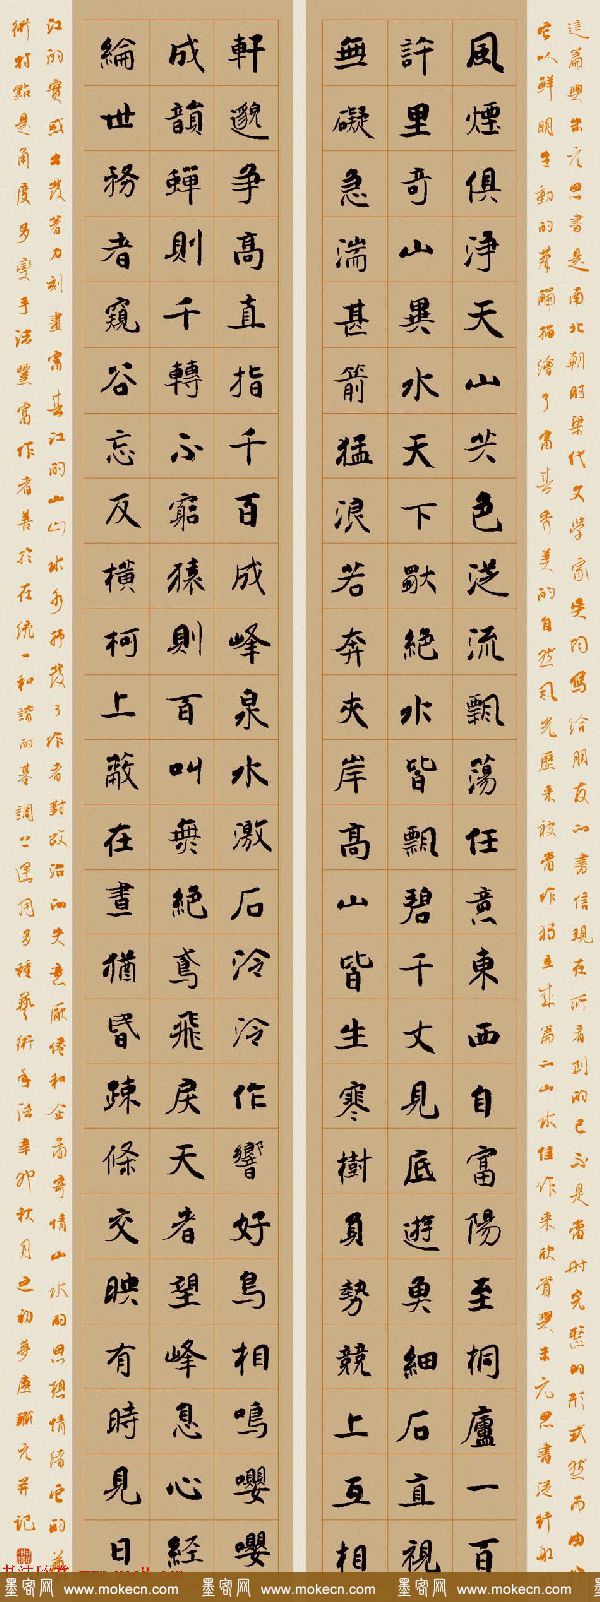 這篇與朱元思書是南北朝時梁代文學家吳均寫給朋友的書信現在所看到的已不是當時完整的形式然而由
它以鮮明生動的筆觸描繪了富春秀美的自然風光歷來被當作獨立成篇的山水佳作來欣賞與朱元思書從行船
風煙俱淨天山共色從流飄蕩任意東西自富陽至桐廬一百
許里奇山異水天下獨絕水皆飄碧千丈見底遊魚細石直視
無礙急湍甚箭猛浪若奔夾岸高山皆生寒樹負勢競上互相
軒邈爭高直指千百成峰泉水激石泠泠作響好鳥相鳴嚶嚶
成韻蟬則千轉不窮猿則百叫無絕鳶飛戾天者望峰息心経
綸世務者窺谷忘反橫柯上蔽在晝猶昏疎條交映有時見日
江的實感出發著力刻畫富春江的山山水水抒發了作者對政治的失意厭倦和企圖寄情山水的思想情緒它的藝
術特點是角度多變手法豐富作者善於在統一和諧的基調上運用多種藝術手法辛卯秋月之初夢廬元并記
墨客网 www.mokecn.com 墨客网 www.mokecn.com 墨客网 www.mokecn.com